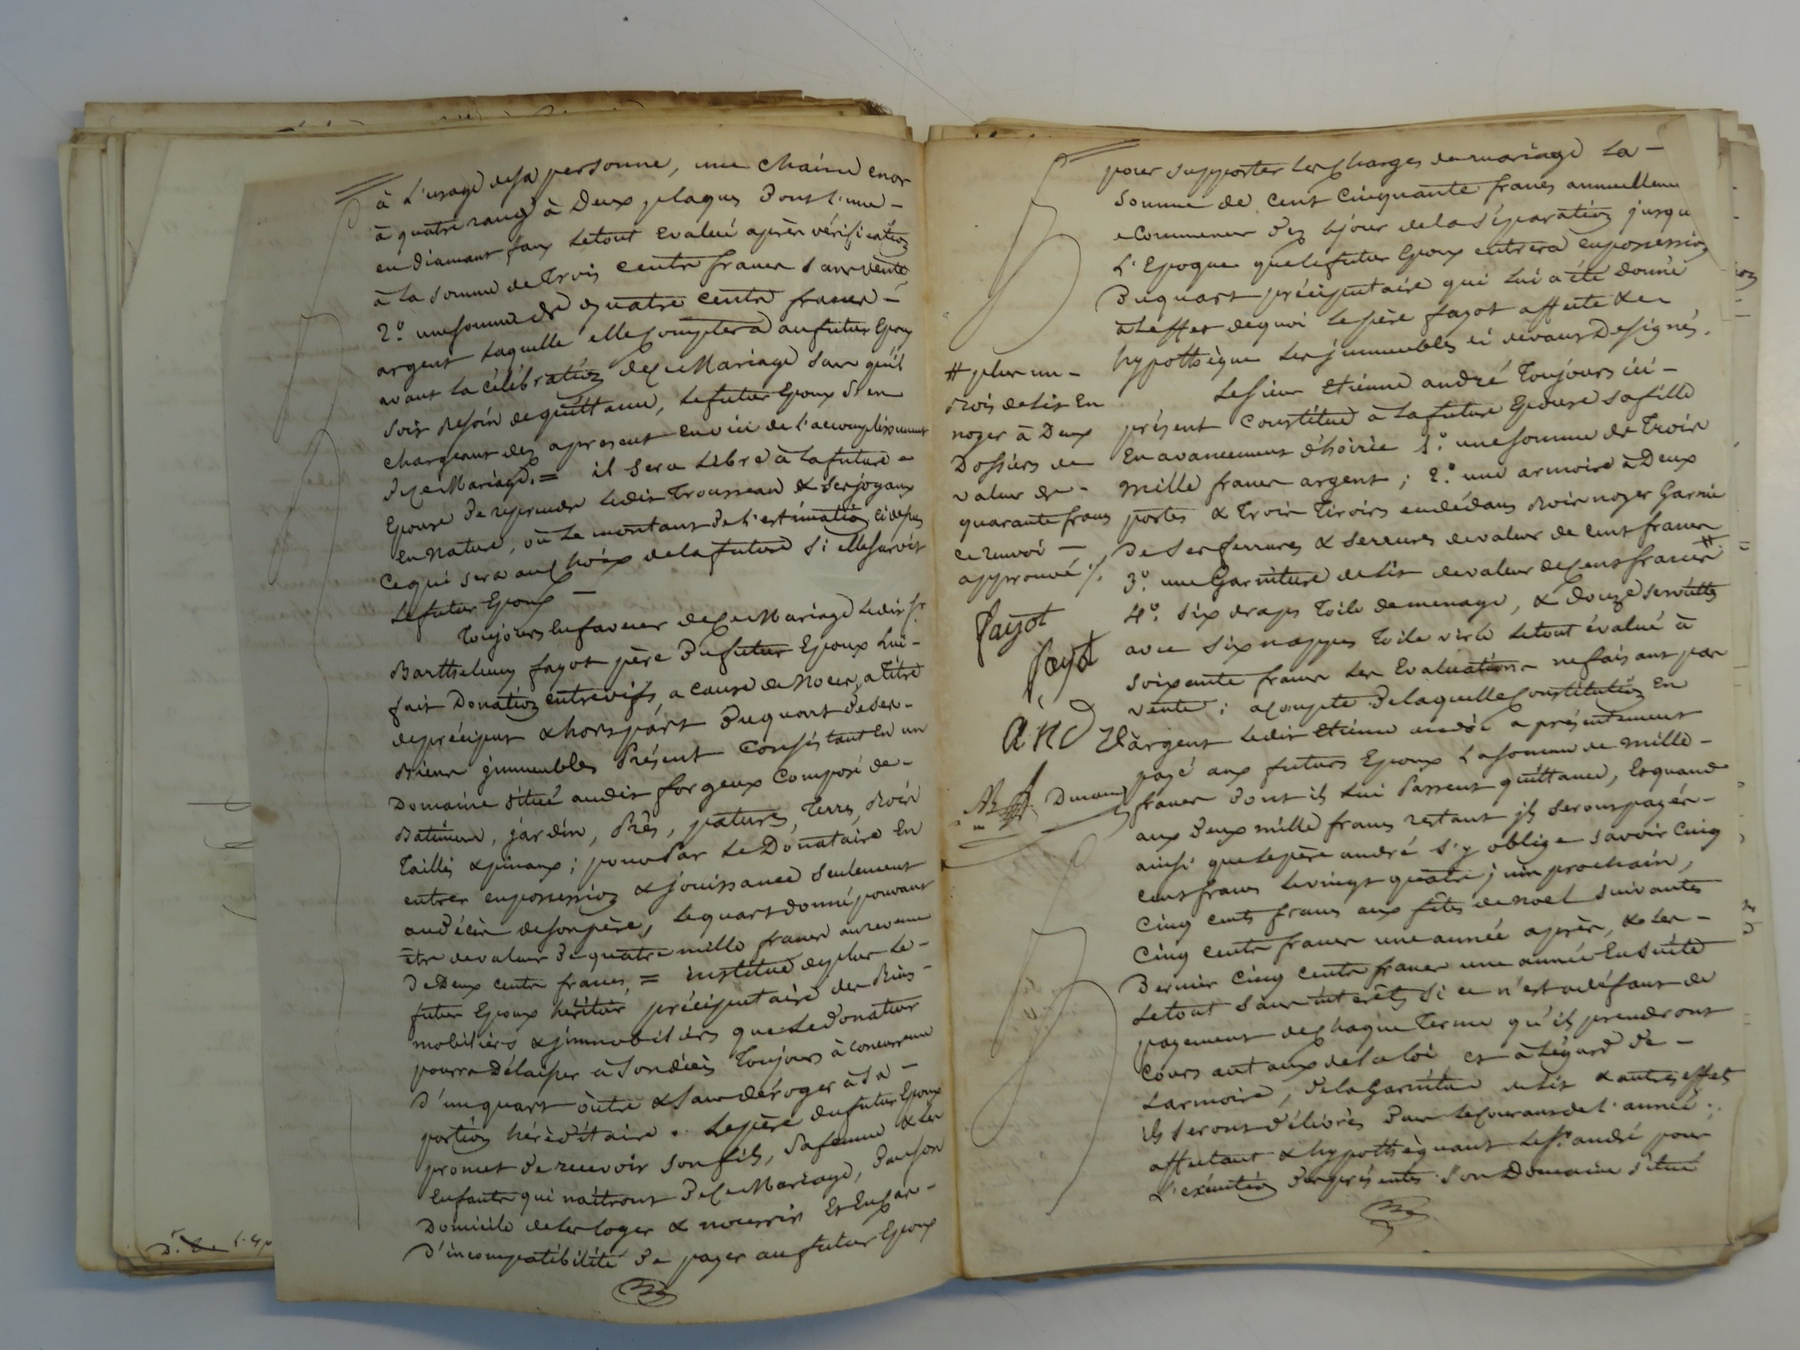 à L'usage desa personne, une chaine en or
à quatre rangs à Deux plaques Dont l'une -
en Diamant faux Le tout Evalué après vérification
à la somme de Trois cents francs sans vente
2.° une somme de quatre cents francs -
argent Laquelle elle Comptera au futur Epoux
avant La célébration de Ce Mariage sans qu'il
soit Besoin de quittance, Le futur Epoux s'en
chargeant dez apresent en vüe de l'accomplissement
de Ce Mariage. = il sera Libre à La future
Epouse de reprendre Ledit Trousseau & ses joyaux
En Nature, ou Le montant de l'estimation ci dessus
Ce qui sera au Choix de la future si elle survit
Le futur Epoux —
Toujours En faveur de Ce Mariage Ledit Sr.
Barthelemy fayot père Du futur Epoux Lui -
fait Donation entrevifs, a cause de Noces, a titre
de préciput & hors part Du quart de ses -
Biens immeubles Présent Consistant En un
Domaine situé audit forgeux Composé de -
Batiment, jardin, Prés, pature, Terre, Bois
Taillis & pinaux; pour Par Le Donataire En
entrer en possession & jouissance seulement
au décès de son père, Le quart donné pouvant
être de valeur De quatre mille francs au revenu
De Deux cents francs, = institue de plus Le -
futur Epoux héritier préciputaire des Biens -
mobiliers & immobiliers que Le donateur
pourra Délaisser à son décès Toujours à concurrence
D'un quart outre & sans déroger à sa -
portion héréditaire. Le père du futur Epoux
promet de recevoir son fils, sa femme & les
Enfants qui naîtront de Ce Mariage, dans son
Domicile de les loger & nourrir Et En Cas -
D'incompatibilité De payer au futur Epoux
pour supporter les Charges du mariage La -
Somme de Cent Cinquante francs annuellement
a Commencer Dez le jour de la séparation jusqu
L'Epoque que le futur Epoux entrera en possession
Du quart préciputaire qui Lui a été donné
à L'effet de quoi Le père fayot affecte &
hypothèque Les immeubles ci devant Designés.
Le sieur Etienne andré Toujours ici -
présent Constitue à La future Epouse sa fille
En avancement d'hoirie 1.° une somme de Trois
Mille francs argent; 2.° une armoire à Deux
portes & Trois Tiroirs en dedans Bois noyer Garnie
De ses ferrures & serrures de valeur de cent francs
3.° une Garniture de Lit de valeur de Cent francs #
4.° six draps Toile de menage, & Douze serviettes
avec six nappes Toile Le tout évalué à
soixante francs Les Evaluations ne faisant pas
vente; acompte De laquelle Constitution En
D'argent Ledit Etienne andré a présentement
payé aux futurs Epoux La Somme de Mille -
francs Dont ils Lui Passent quittance, Et quand
aux Deux mille francs restant ils seront payés -
ainsi que Le père andré s'y oblige savoir Cinq
cent francs Le vingt quatre juin prochain,
Cinq cents francs aux fêtes de noel suivantes
Cinq cents francs une année après, & Les -
Dernier Cinq cents francs une année Ensuite
Le tout sans intérêts si ce n'est a défaut de
payement de Chaque Terme qu'ils prendront
Cours au taux de la loi et à L'égard De -
L'armoire, De la Garniture de Lit & autres effets
ils seront Délivrés Dans Le Courant de l'année;
affectant & hypothèquant Le Sr. andré pour
L'exécution Des présentes son Domaine situé
# plus un -
Bois de Lit En
noyer à Deux
Dossiers de
valeur de -
quarante francs
ce renvoi —
approuvé ./.
fayot
fayot
AND
Durand